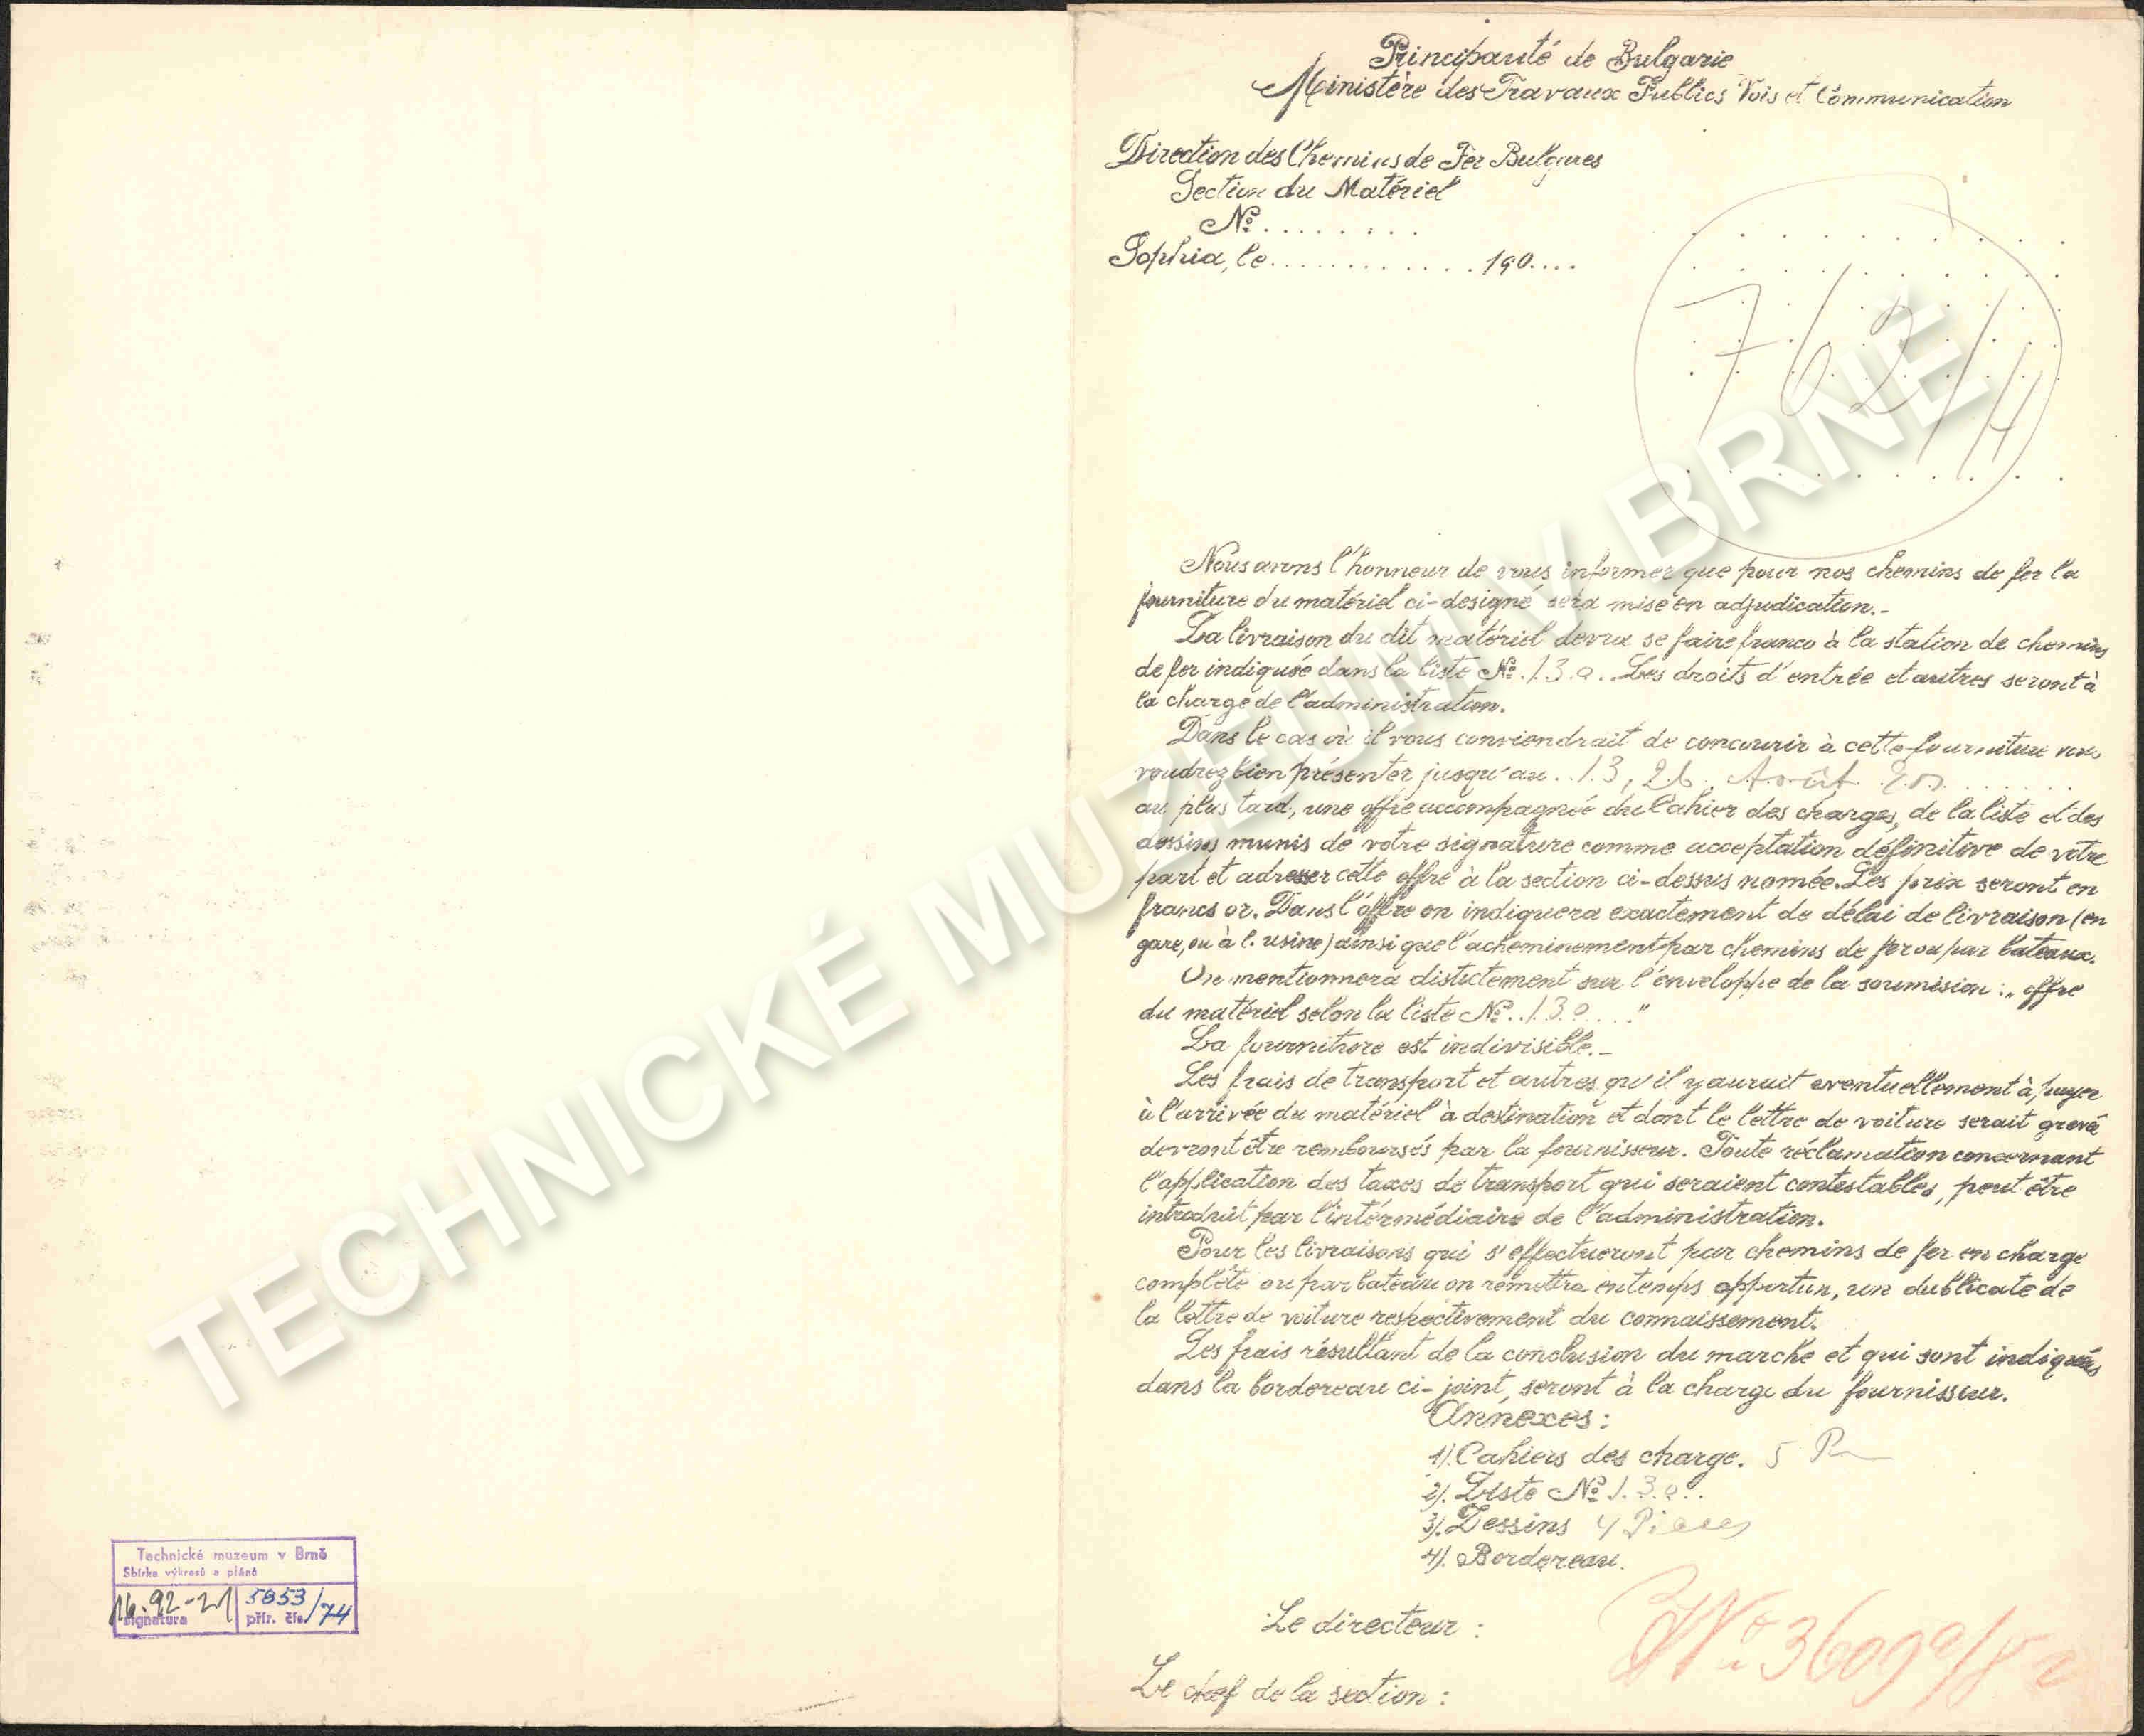 Principauté de Bulgarie
Ministère des Travaux Publics Vois et Communication
Direction des Chemins de Fer Bulgares
Section du Matériel
№ . . . . . . . .
Sophia, le . . . . . . . . . . . . 190....
762/H
Nous avons l'honneur de vous informer que pour nos chemins de fer la
fourniture du matériel ci-designé sera mise en adjudication.-
La livraison du dit matériel devra se faire franco à la station de chemins
de fer indiquée dans la liste №. 1.3.a.. Les droits d'entrée et autres seront à
la charge de l'administration.
Dans le cas où il vous conviendrait de concourir à cette fourniture vous
voudrez bien présenter jusqu'au . . 13, 26. Août
au plus tard, une offre accompagnée du Cahier des charges, de la liste et des
dessins munis de votre signature comme acceptation définitive de votre
part et adresser cette offre à la section ci-dessus nomée. Les prix seront en
francs or. Dans l'offre on indiquera exactement de délai de livraison (en
gare, ou à l. usine) ainsi que l'acheminement par chemins de fer ou par bateaux.
On mentionnera distictement sur l'enveloppe de la soumision : „offre
du matériel selon la liste №. . 1.3.a . . . "
La fourniture est indivisible.-
Les frais de transport et autres qu'il y aurait eventuellement à payer
à l'arrivée du matériel à destination et dont le lettre de voiture serait grevé
devront être remboursés par la fournisseur. Toute réclamation concernant
l'application des taxes de transport qui seraient contestables, peut être
introduit par l'intérmédiaire de l'administration.
Pour les livraisons qui s'effectueront par chemins de fer en charge
complète ou par bateau on remettra en temps opportun, un dublicate de
la lettre de voiture respectivement du connaissement.
Les frais résultant de la conclusion du marché et qui sont indiqués
dans la bordereau ci-joint, seront à la charge du fournisseur.
Annexes:
1). Cahiers des charge. 5
2). Liste № 1.3.a..
3). Dessins 4 Pièces
4). Bordereau.
Le directeur :
Le chef de la section :
№ 3609
Technické muzeum v Brně
Sbírka výkresů a plánů
16.92-21
signatura
5853/74
přír. čís.
TECHNICKÉ MUZEUM V BRNĚ